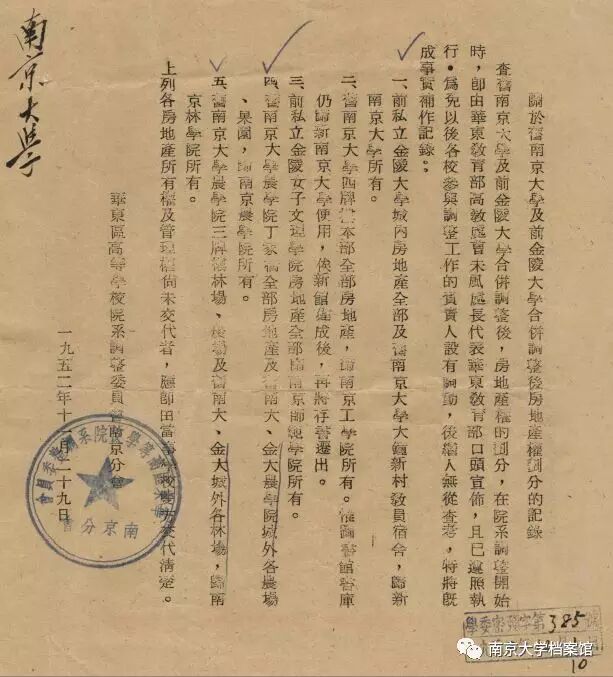 南京大學
關於舊南京大學及前金陵大學合併調整後房地產權劃分的記錄
查舊南京大學及前金陵大學合併調整後，房地產權的劃分，在院系調整開始
時，卽由華東敎育部高敎處曹未風處長代表華東敎育部口頭宣佈，且已遵照執
行。爲免以後各校參與調整工作的負責人設有調動，後繼人無從查考，特將旣
成事實補作記錄：
一、前私立金陵大學城內房地產全部及舊南京大學大鐘新村敎員宿舍，歸新
南京大學所有。
二、舊南京大學四牌樓本部全部房地產，歸南京工學院所有。惟圖書館書庫
仍歸新南京大學使用，俟新館落成後，再將存書遷出。
三、前私立金陵女子文理學院房地產全部歸南京師範學院所有。
四、舊南京大學農學院丁家橋全部房地產及舊南大、金大農學院城外各農場
、果園，歸南京農學院所有。
五、舊南京大學農學院三牌樓林場、農場及舊南大、金大城外各林場，歸南
京林學院所有。
上列各房地產所有權及管理權尙未交代者，應卽由當事學校雙方交代淸楚。
華東區高等學校院系調整委員會南京分會
一九五二年十 月二十九日
南京分會
學委密預字第385號
10
南京大学档案馆